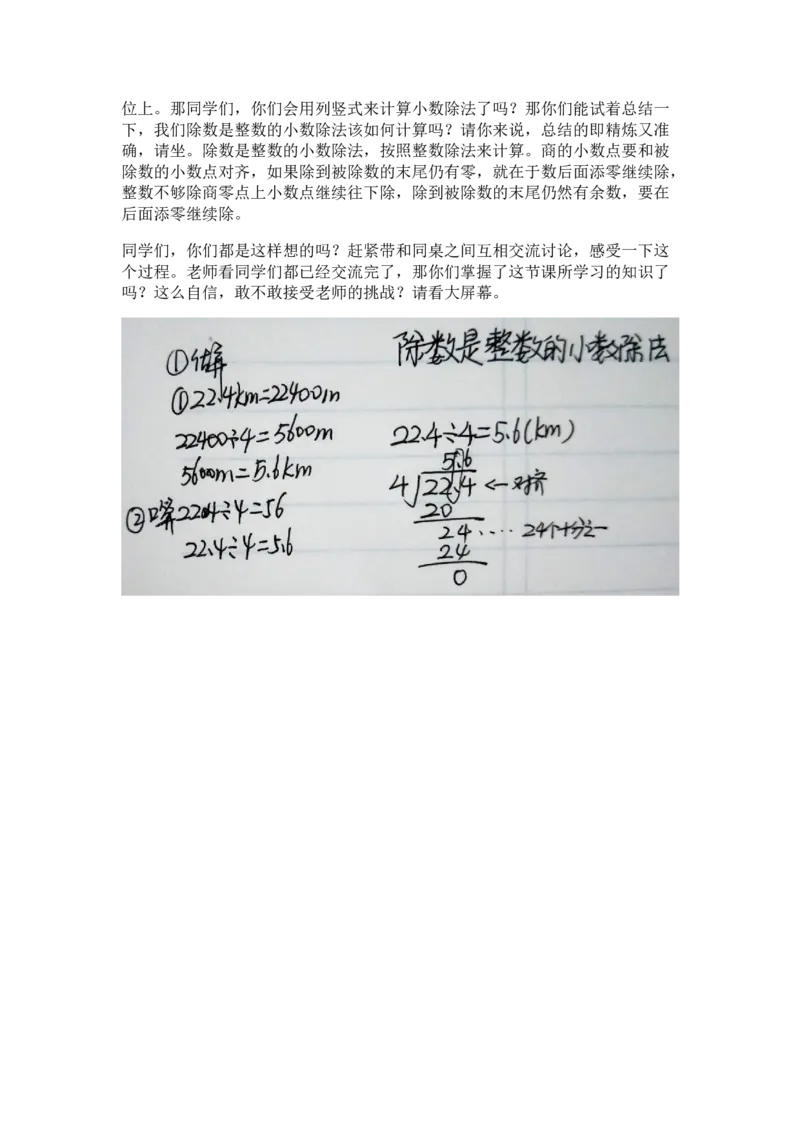 位上。那同学们，你们会用列竖式来计算小数除法了吗？那你们能试着总结一
下，我们除数是整数的小数除法该如何计算吗？请你来说，总结的即精炼又准
确，请坐。除数是整数的小数除法，按照整数除法来计算。商的小数点要和被
除数的小数点对齐，如果除到被除数的末尾仍有零，就在于数后面添零继续除，
整数不够除商零点上小数点继续往下除，除到被除数的末尾仍然有余数，要在
后面添零继续除。
同学们，你们都是这样想的吗？赶紧带和同桌之间互相交流讨论，感受一下这
个过程。老师看同学们都已经交流完了，那你们掌握了这节课所学习的知识了
吗？这么自信，敢不敢接受老师的挑战？请看大屏幕。
除数是整数的小数除法
①估算
①22.4km=22400m
22400÷4=5600m
5600m=5.6km
②口算 224÷4=56
22.4÷4=5.6
22.4÷4=5.6(km)
5.6
4 22.4 ← 对齐
20
24 ···· 24个十分之一
24
0